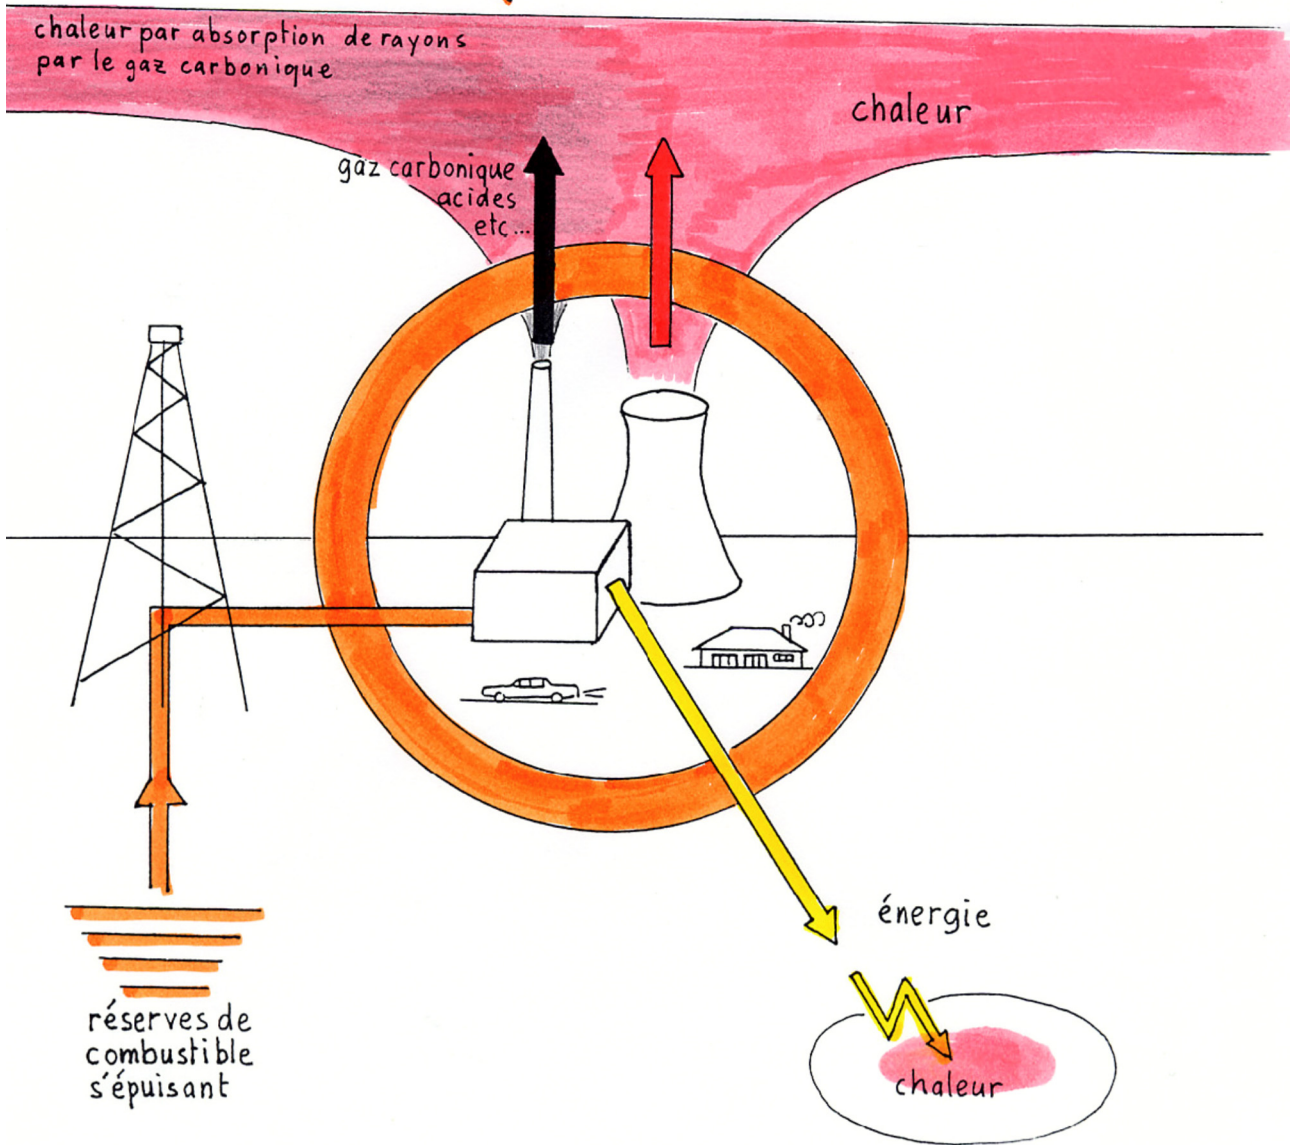 chaleur par absorption de rayons
par le gaz carbonique
chaleur
gaz carbonique
acides
etc...
énergie
réserves de
combustible
s'épuisant
chaleur